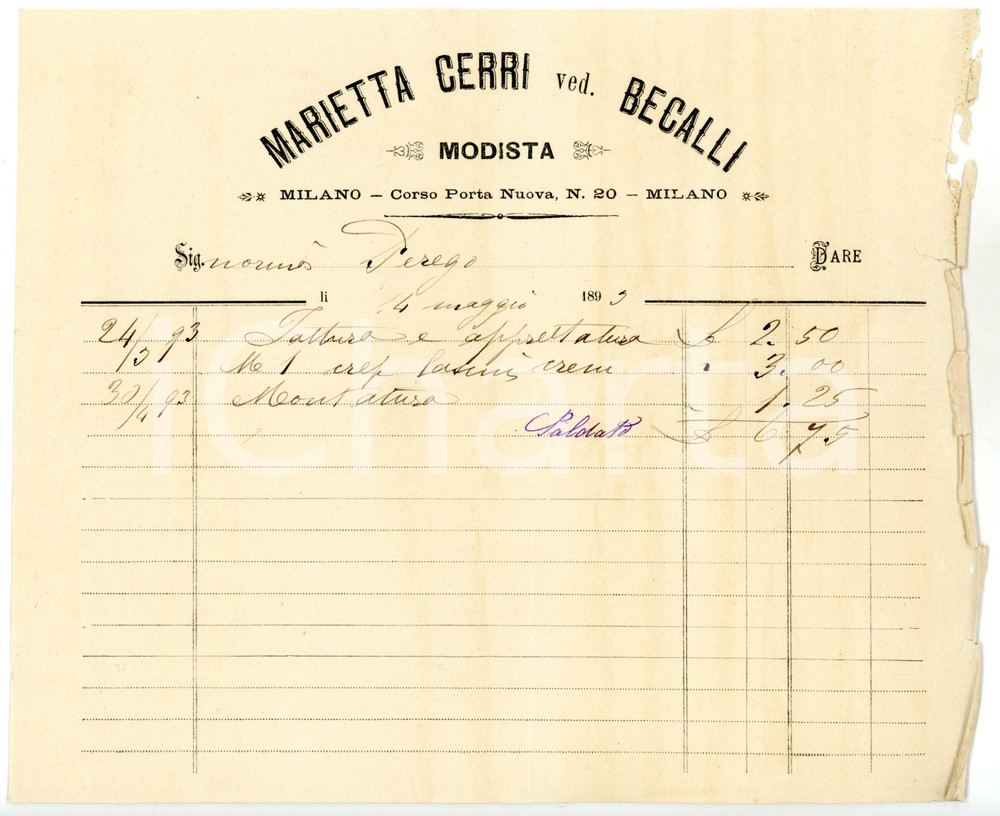 MARIETTA CERRI ved. BECALLI
MODISTA
MILANO – Corso Porta Nuova, N. 20 – MILANO
Signorina Perego DARE
li 4 maggio 1893
24/3 93 Fattura e apprettatura £ 2.50
M 1 crep crem " 3.00
30/4 93 Montatura " 1.25
Saldato £ 6.75
iCharta